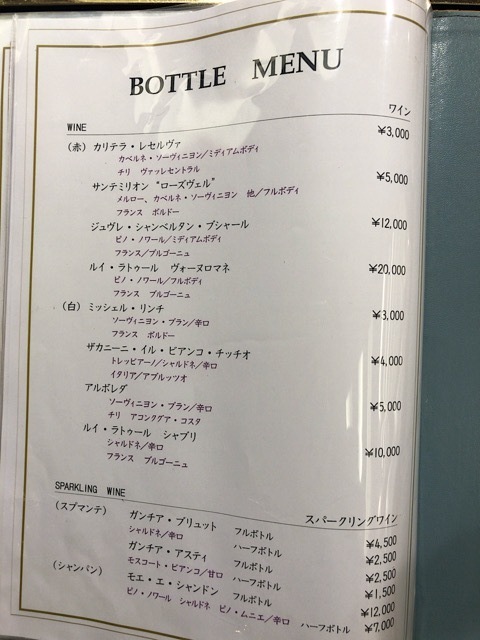 BOTTLE MENU
WINE ワイン
(赤) カリテラ・レセルヴァ ¥3,000
カベルネ・ソーヴィニヨン/ミディアムボディ
チリ ヴァッレセントラル
サンテミリオン “ローズヴェル” ¥5,000
メルロー、カベルネ・ソーヴィニヨン 他/フルボディ
フランス ボルドー
ジュヴレ・シャンベルタン・ブシャール ¥12,000
ピノ・ノワール/ミディアムボディ
フランス/ブルゴーニュ
ルイ・ラトゥール ヴォーヌロマネ ¥20,000
ピノ・ノワール/フルボディ
フランス ブルゴーニュ
(白) ミッシェル・リンチ ¥3,000
ソーヴィニヨン・ブラン/辛口
フランス ボルドー
ザカニーニ・イル・ビアンコ・チッチオ ¥4,000
トレッビアーノ/シャルドネ/辛口
イタリア/アブルッツオ
アルボレダ ¥5,000
ソーヴィニヨン・ブラン/辛口
チリ アコンクグア・コスタ
ルイ・ラトゥール シャブリ ¥10,000
シャルドネ/辛口
フランス ブルゴーニュ
SPARKLING WINE スパークリングワイン
(スプマンテ) ガンチア・ブリュット フルボトル ¥4,500
シャルドネ/辛口 ハーフボトル ¥2,500
ガンチア・アスティ フルボトル ¥2,500
モスコート・ビアンコ/甘口 ハーフボトル ¥1,500
(シャンパン) モエ・エ・シャンドン フルボトル ¥12,000
ピノ・ノワール シャルドネ ピノ・ムニエ/辛口 ハーフボトル ¥7,000